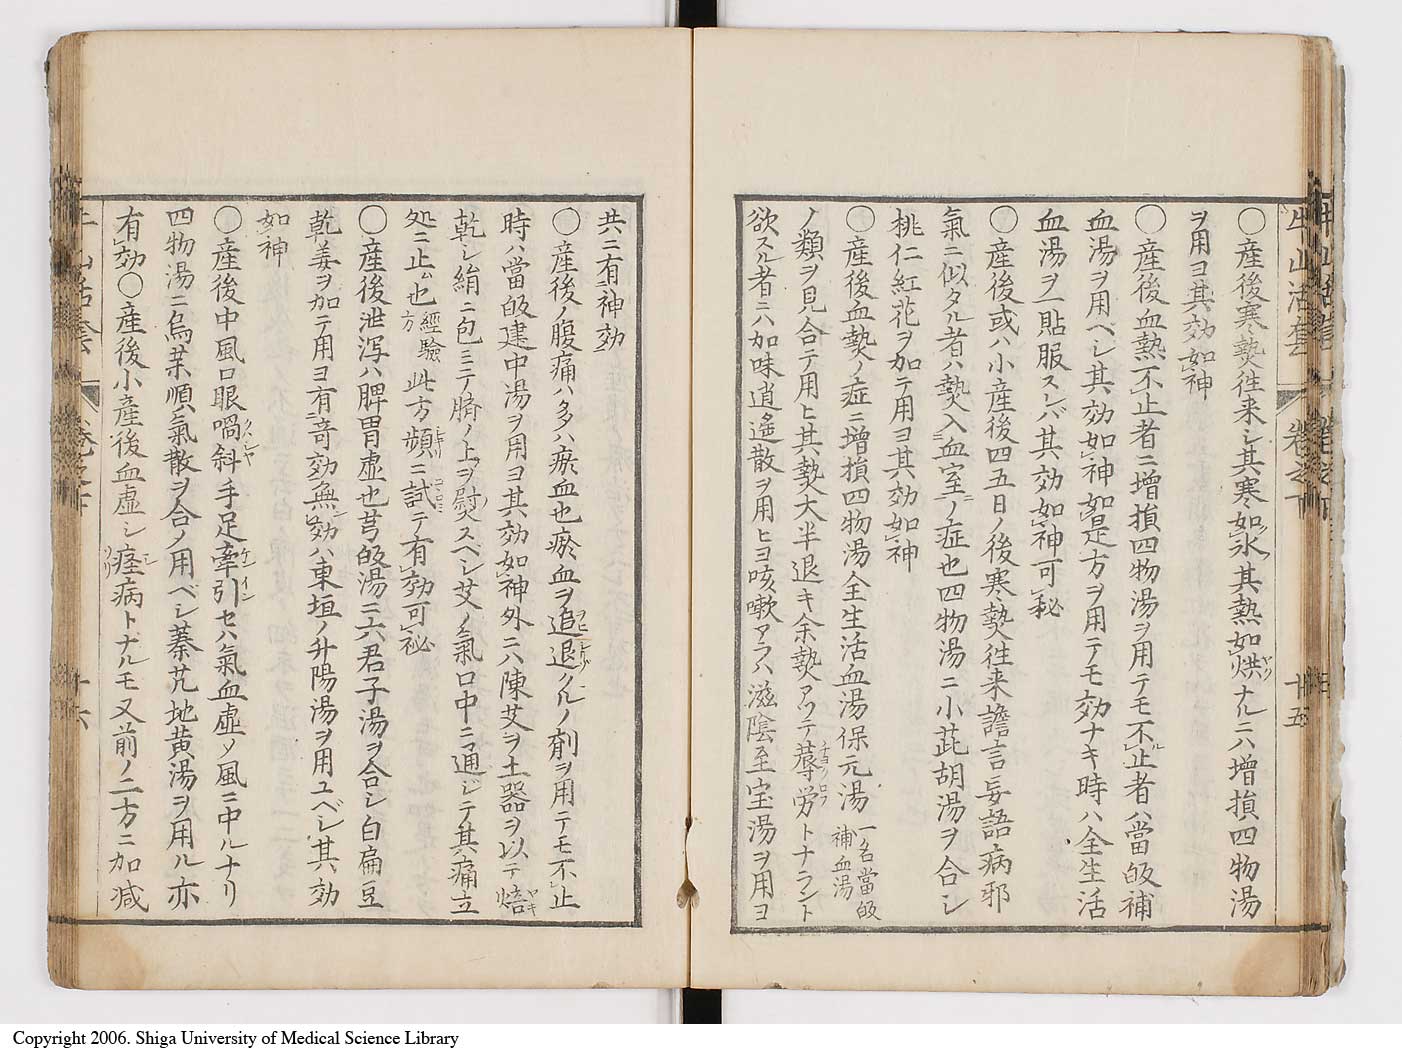 〇産後寒熱徃来シ其寒如氷其熱如烘ナルニハ増損四物湯
ヲ用ヨ其効如神
〇産後血熱不止者ニ増損四物湯ヲ用テモ不止者ハ當皈補
血湯ヲ用ベシ其効如神如是方ヲ用テモ効ナキ時ハ全生活
血湯ヲ一貼服スレバ其効如神可秘
〇産後或ハ小産後四五日ノ後寒熱徃来譫言妄語病邪
氣ニ似タル者ハ熱入血室ノ症也四物湯ニ小茈胡湯ヲ合シ
桃仁紅花ヲ加テ用ヨ其効如神
〇産後血熱ノ症ニ増損四物湯全生活血湯保元湯 一名當皈補血湯
ノ類ヲ見合テ用ヒ其熱大半退キ余熱アツテ蓐労トナラント
欲スル者ニハ加味逍遙散ヲ用ヒヨ咳嗽アラハ滋陰至宝湯ヲ用ヨ
牛山活套 巻之下 十五
共ニ有神効
〇産後ノ腹痛ハ多ハ瘀血也瘀血ヲ追退クルノ剤ヲ用テモ不止
時ハ當皈建中湯ヲ用ヨ其効如神外ニハ陳艾ヲ土器ヲ以テ焙
乾シ絹ニ包ミテ臍ノ上ヲ熨スベシ艾ノ氣口中ニ通ジテ其痛立
処ニ止ム也 經驗方 此方頻ニ試テ有効可祕
〇産後泄泻ハ脾胃虚也芎皈湯ニ六君子湯ヲ合シ白扁豆
乾姜ヲ加テ用ヨ有竒効無効ハ東垣ノ升陽湯ヲ用ユベシ其効
如神
〇産後中風口眼喎斜手足牽引セハ氣血虚ノ風ニ中ルナリ
四物湯ニ烏藥順氣散ヲ合ノ用ベシ蓁艽地黄湯ヲ用ル亦
有効〇産後小産後血虚シ痙病トナルモ又前ノ二方ニ加減
牛山活套 巻之下 十六
Copyright 2006. Shiga University of Medical Science Library